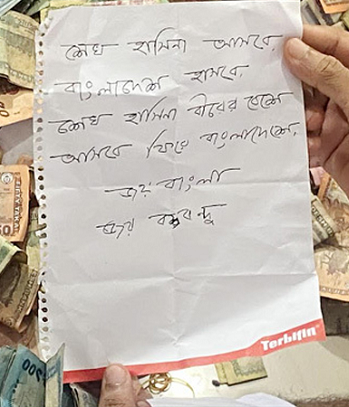 শেখ হাসিনা আসবে,
বাংলাদেশ হাসবে,
শেখ হাসিনা বীরের বেশে
আসবে ফিরে বাংলাদেশে,
জয় বাংলা
জয় বঙ্গবন্ধু
Terbifin